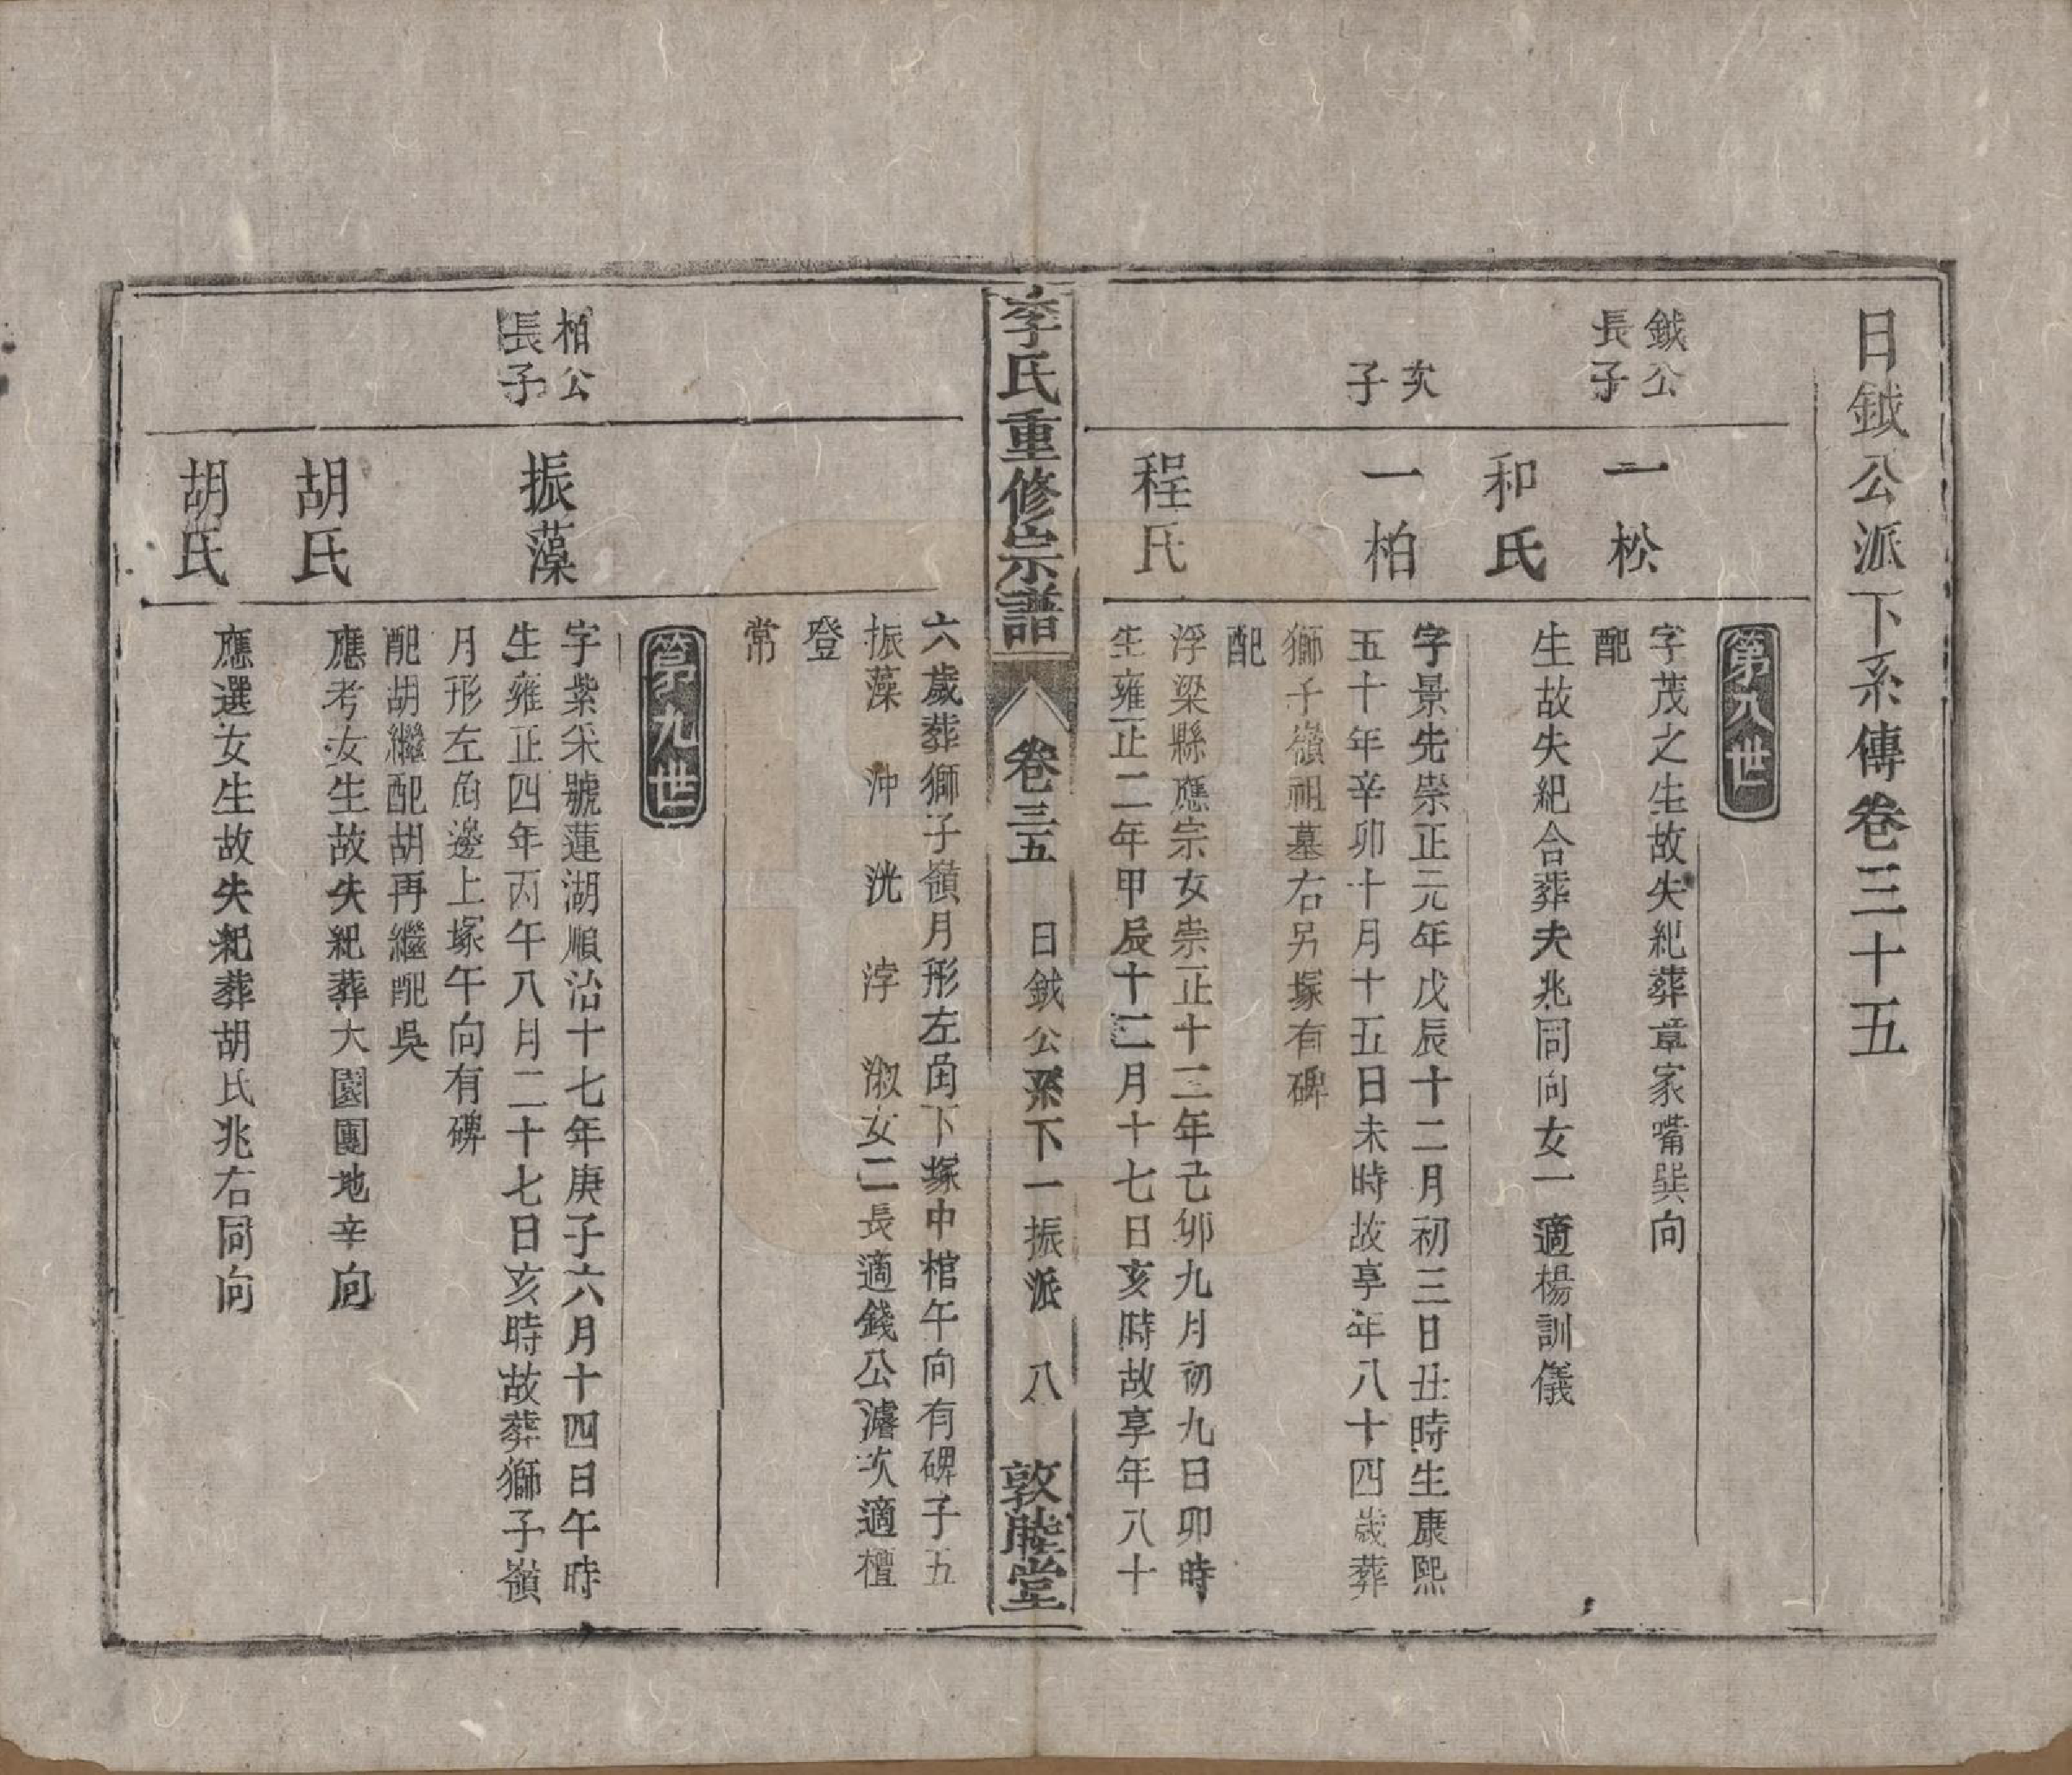 日鉞公派下系傳卷三十五
第八世
鉞公
長子
一松
字茂之生故失紀葬章家嘴巽向
配
和氏
生故失紀合葬夫兆同向女一適楊訓儀
次
子
一柏
字景先崇正元年戊辰十二月初三日丑時生康熙
五十年辛卯十月十五日未時故享年八十四歲葬
獅子嶺祖墓右另塚有碑
配
程氏
浮梁縣應宗女崇正十二年己卯九月初九日卯時
生雍正二年甲辰十二月十七日亥時故享年八十
李氏重修宗譜 卷三五 日鉞公系下一振派 八 敦睦堂
六歲葬獅子嶺月形左角下塚中棺午向有碑子五
振藻 沖 洸 浡 淑女二長適錢公濬次適檀
登
常
第九世
柏公
長子
振藻
字紫采號蓮湖順治十七年庚子六月十四日午時
生雍正四年丙午八月二十七日亥時故葬獅子嶺
月形左角邊上塚午向有碑
配胡繼配胡再繼配吳
胡氏
應考女生故失紀葬大園團地辛向
胡氏
應選女生故失紀葬胡氏兆右同向